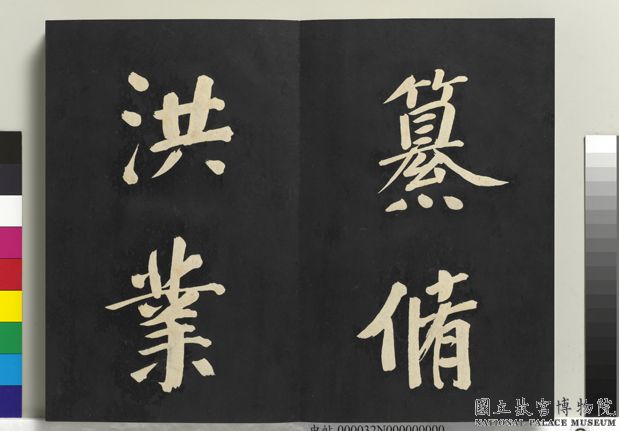 纂脩
洪業
國立故宮博物院
NATIONAL PALACE MUSEUM